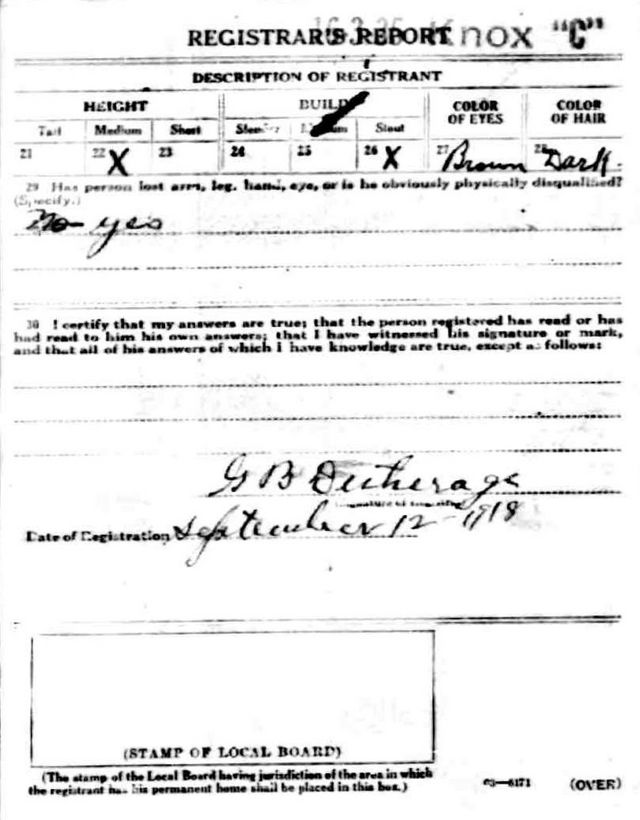 REGISTRAR'S REPORT Knox "C"
DESCRIPTION OF REGISTRANT
HEIGHT BUILD COLOR OF EYES COLOR OF HAIR
Tall Medium Short Slender Medium Stout
21 22 X 23 24 25 26 X 27 Brown 28 Dark.
29 Has person lost arm, leg, hand, eye, or is he obviously physically disqualified?
(Specify.)
No yes
30 I certify that my answers are true; that the person registered has read or has
had read to him his own answers; that I have witnessed his signature or mark,
and that all of his answers of which I have knowledge are true, except as follows:
G B Detherage
Date of Registration September 12 - 1918
(STAMP OF LOCAL BOARD)
(The stamp of the Local Board having jurisdiction of the area in which
the registrant has his permanent home shall be placed in this box.)
03—6171 (OVER)